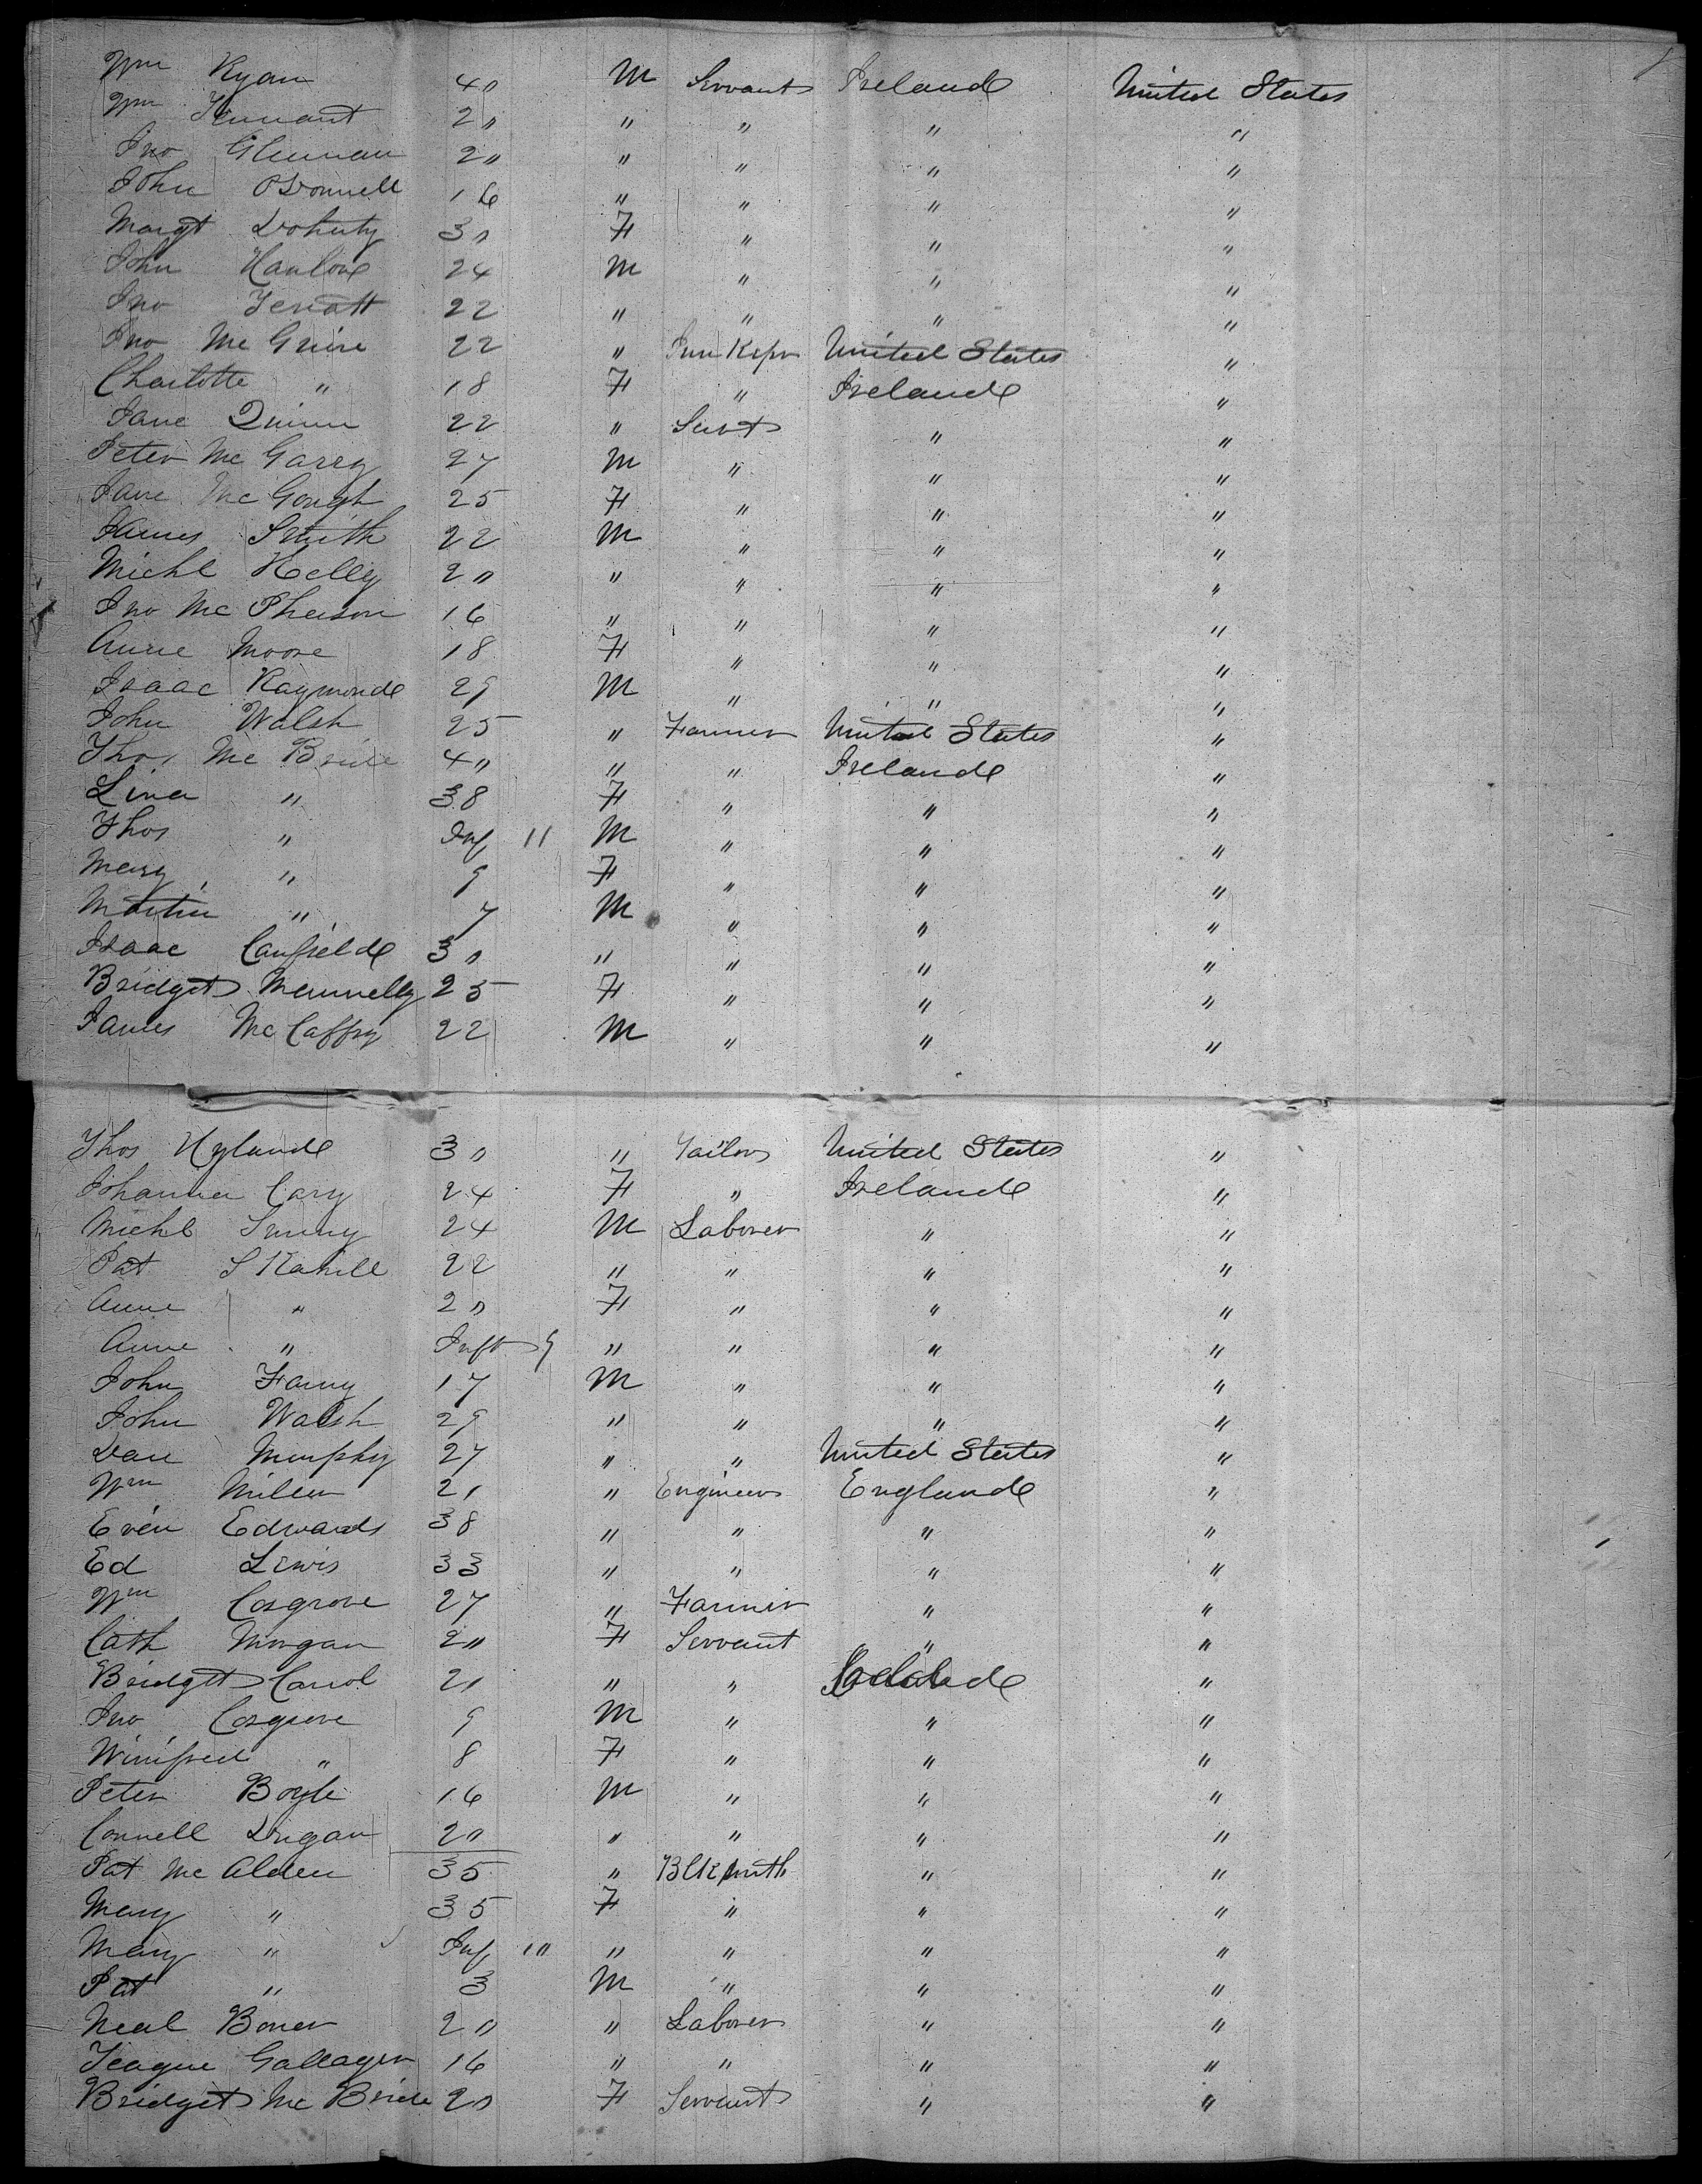 Wm Ryan 40 M Servant Ireland United States
Wm Tennant 20 " " " "
Jno Glennan 20 " " " "
John O'Donnell 16 " " " "
Margt Doherty 30 F " " "
John Hanlon 24 M " " "
Jno 22 " " " "
Jno McGuire 22 " Inn Kepr United States "
Charlotte " 18 F " Ireland "
Jane Quinn 22 " Servt " "
Peter McGarry 27 M " " "
Jane McGough 25 F " " "
James Smith 22 M " " "
Michl Kelly 20 " " " "
Jno McPherson 16 " " " "
Anne Moore 18 F " " "
Isaac Raymond 29 M " " "
John Walsh 25 " Farmer United States "
Thos McBride 40 " " Ireland "
Lina " 38 F " " "
Thos " Inf 11 M " " "
Mary " 9 F " " "
Martin " 7 M " " "
Isaac Caufield 30 " " " "
Bridget Mennelly 25 F " " "
James McCaffry 22 M " " "
Thos Hyland 30 " Tailor United States "
Johanna Cary 24 F " Ireland "
Michl 24 M Laborer " "
Pat SKahill 22 " " " "
Anne " 20 F " " "
Anne " Inft 9 " " " "
John Fanny 17 M " " "
John Walsh 29 " " " "
Dan Murphy 27 " " United States "
Wm Miller 21 " Engineer England "
Even Edwards 38 " " " "
Ed Lewis 33 " " " "
Wm Cosgrove 27 " Farmer " "
Cath Morgan 20 F Servant " "
Bridget Carrol 21 " " "
Jno Cosgrove 9 M " " "
Winifred " 8 F " " "
Peter Boyle 16 M " " "
Connell Dugan 20 " " " "
Pat McAlden 35 " Blksmith " "
Mary " 35 F " " "
Mary " Inf 10 " " " "
Pat " 3 M " " "
Neal Boner 20 " Laborer " "
Teague Gallager 16 " " " "
Bridget McBride 20 F Servant " "